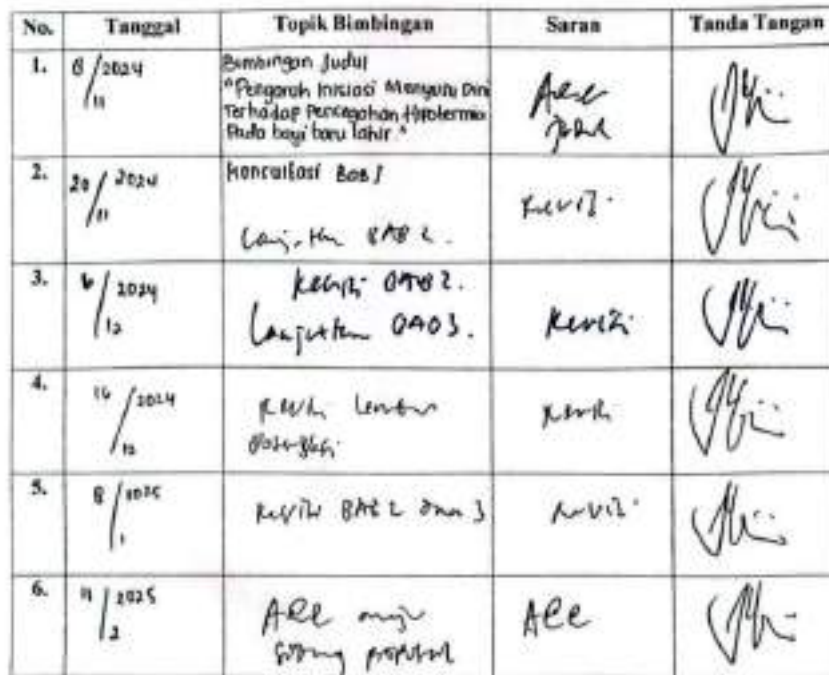 No. Tanggal Topik Bimbingan Saran Tanda Tangan
1. 8/11 2024 Bimbingan Judul
"Pengaruh Inisiasi Menyusu Dini
Terhadap Pencegahan Hipotermia
Pada bayi baru lahir."
Acc
judul
2. 20/11 2024 Konsultasi BAB I
Lanjutkan BAB 2.
Revisi.
3. 6/12 2024 Revisi BAB 2.
Lanjutkan BAB 3.
Revisi
4. 16/12 2024 Revisi
Revisi
5. 8/1 2025 Revisi BAB 2 dan 3
Revisi
6. 11/2 2025 ACC maju
sidang proposal
ACC